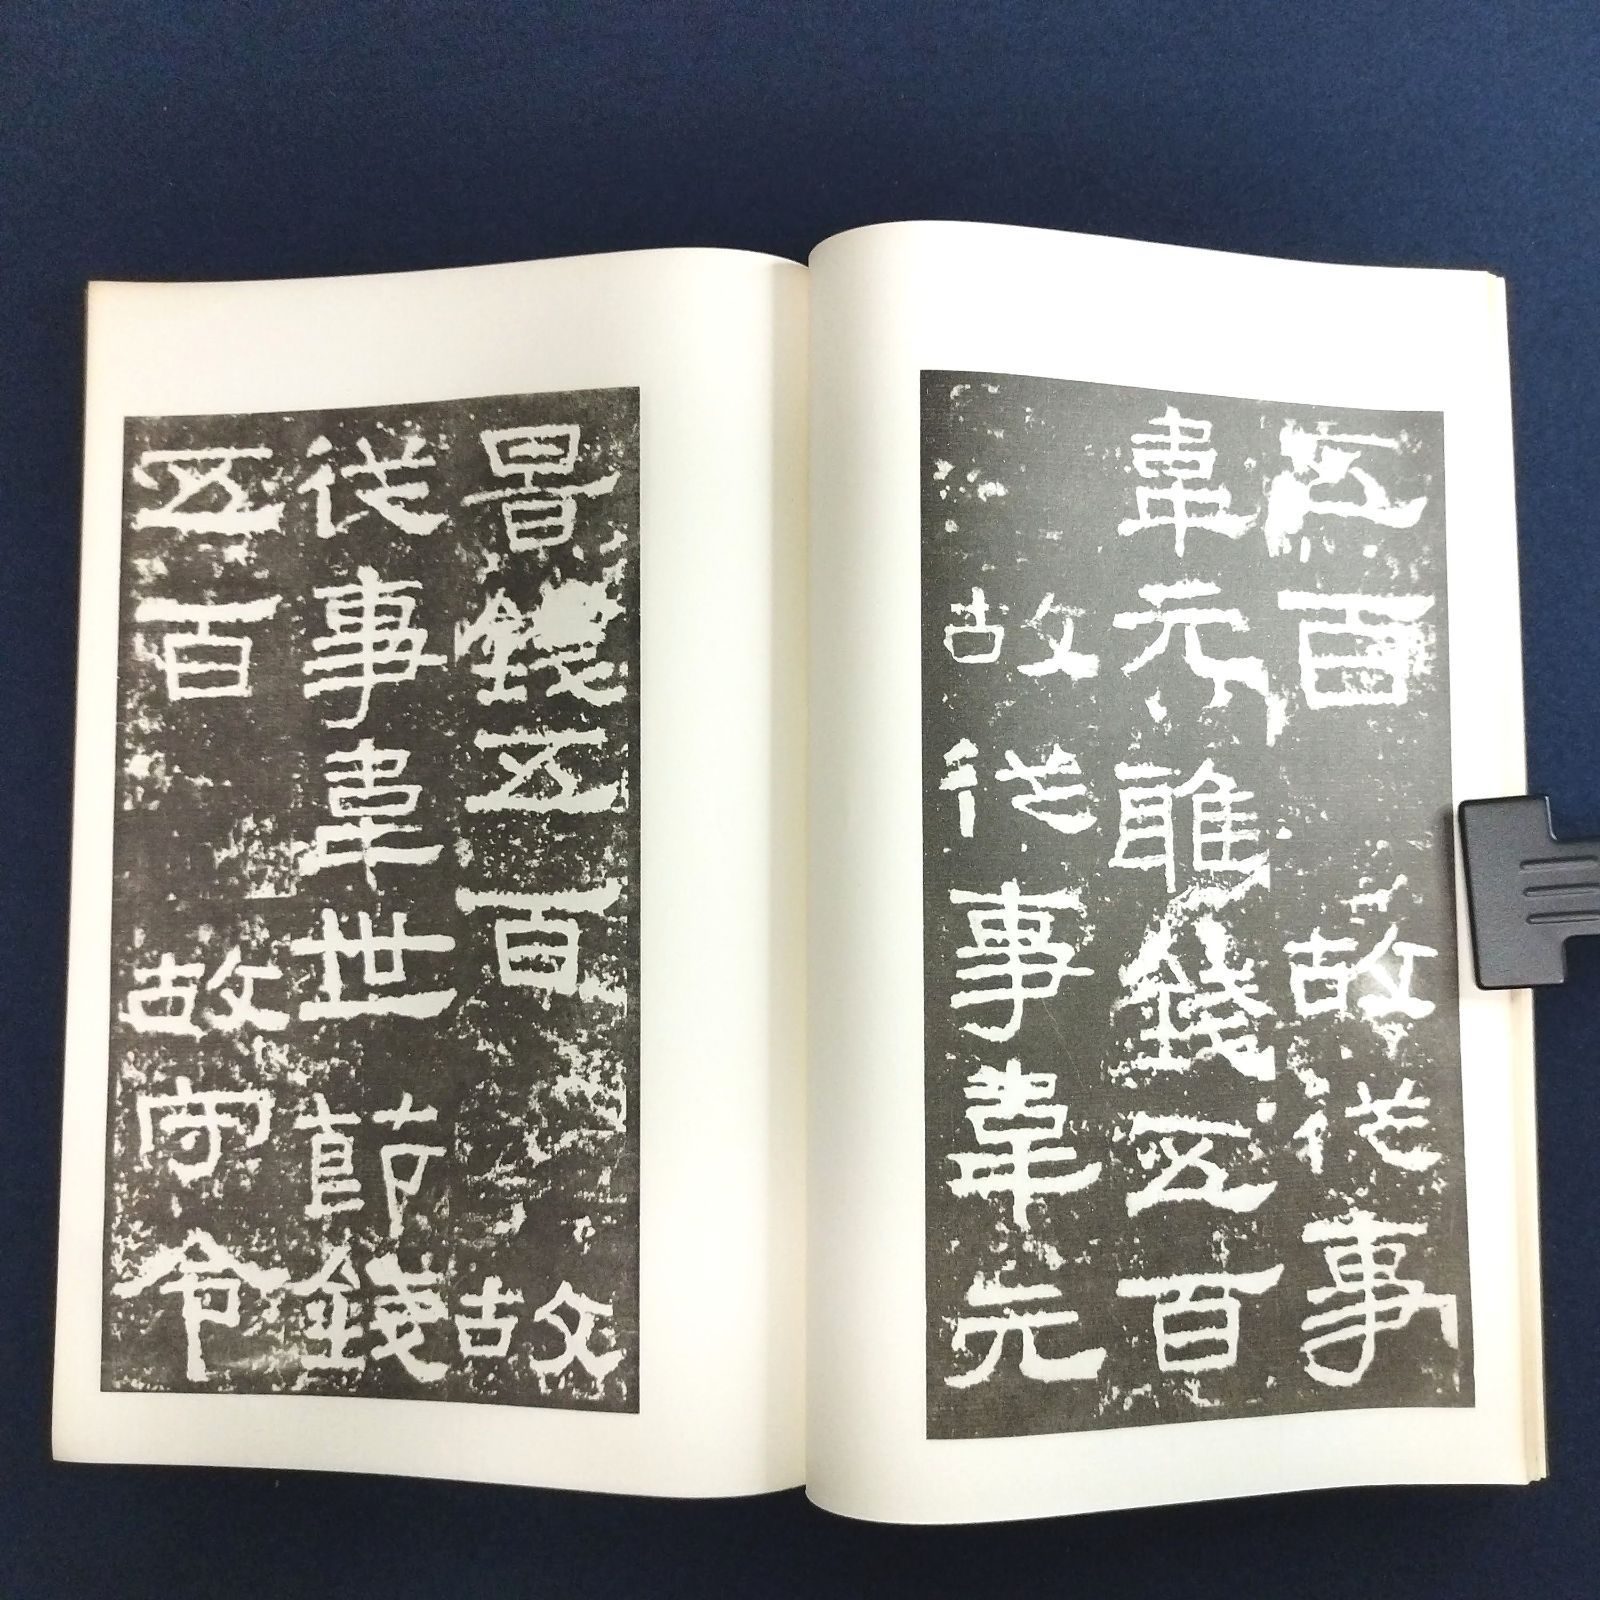 五百 故從事
韋元雅錢五百
故從事韋元
景錢五百 故
從事韋世節錢
五百 故守令